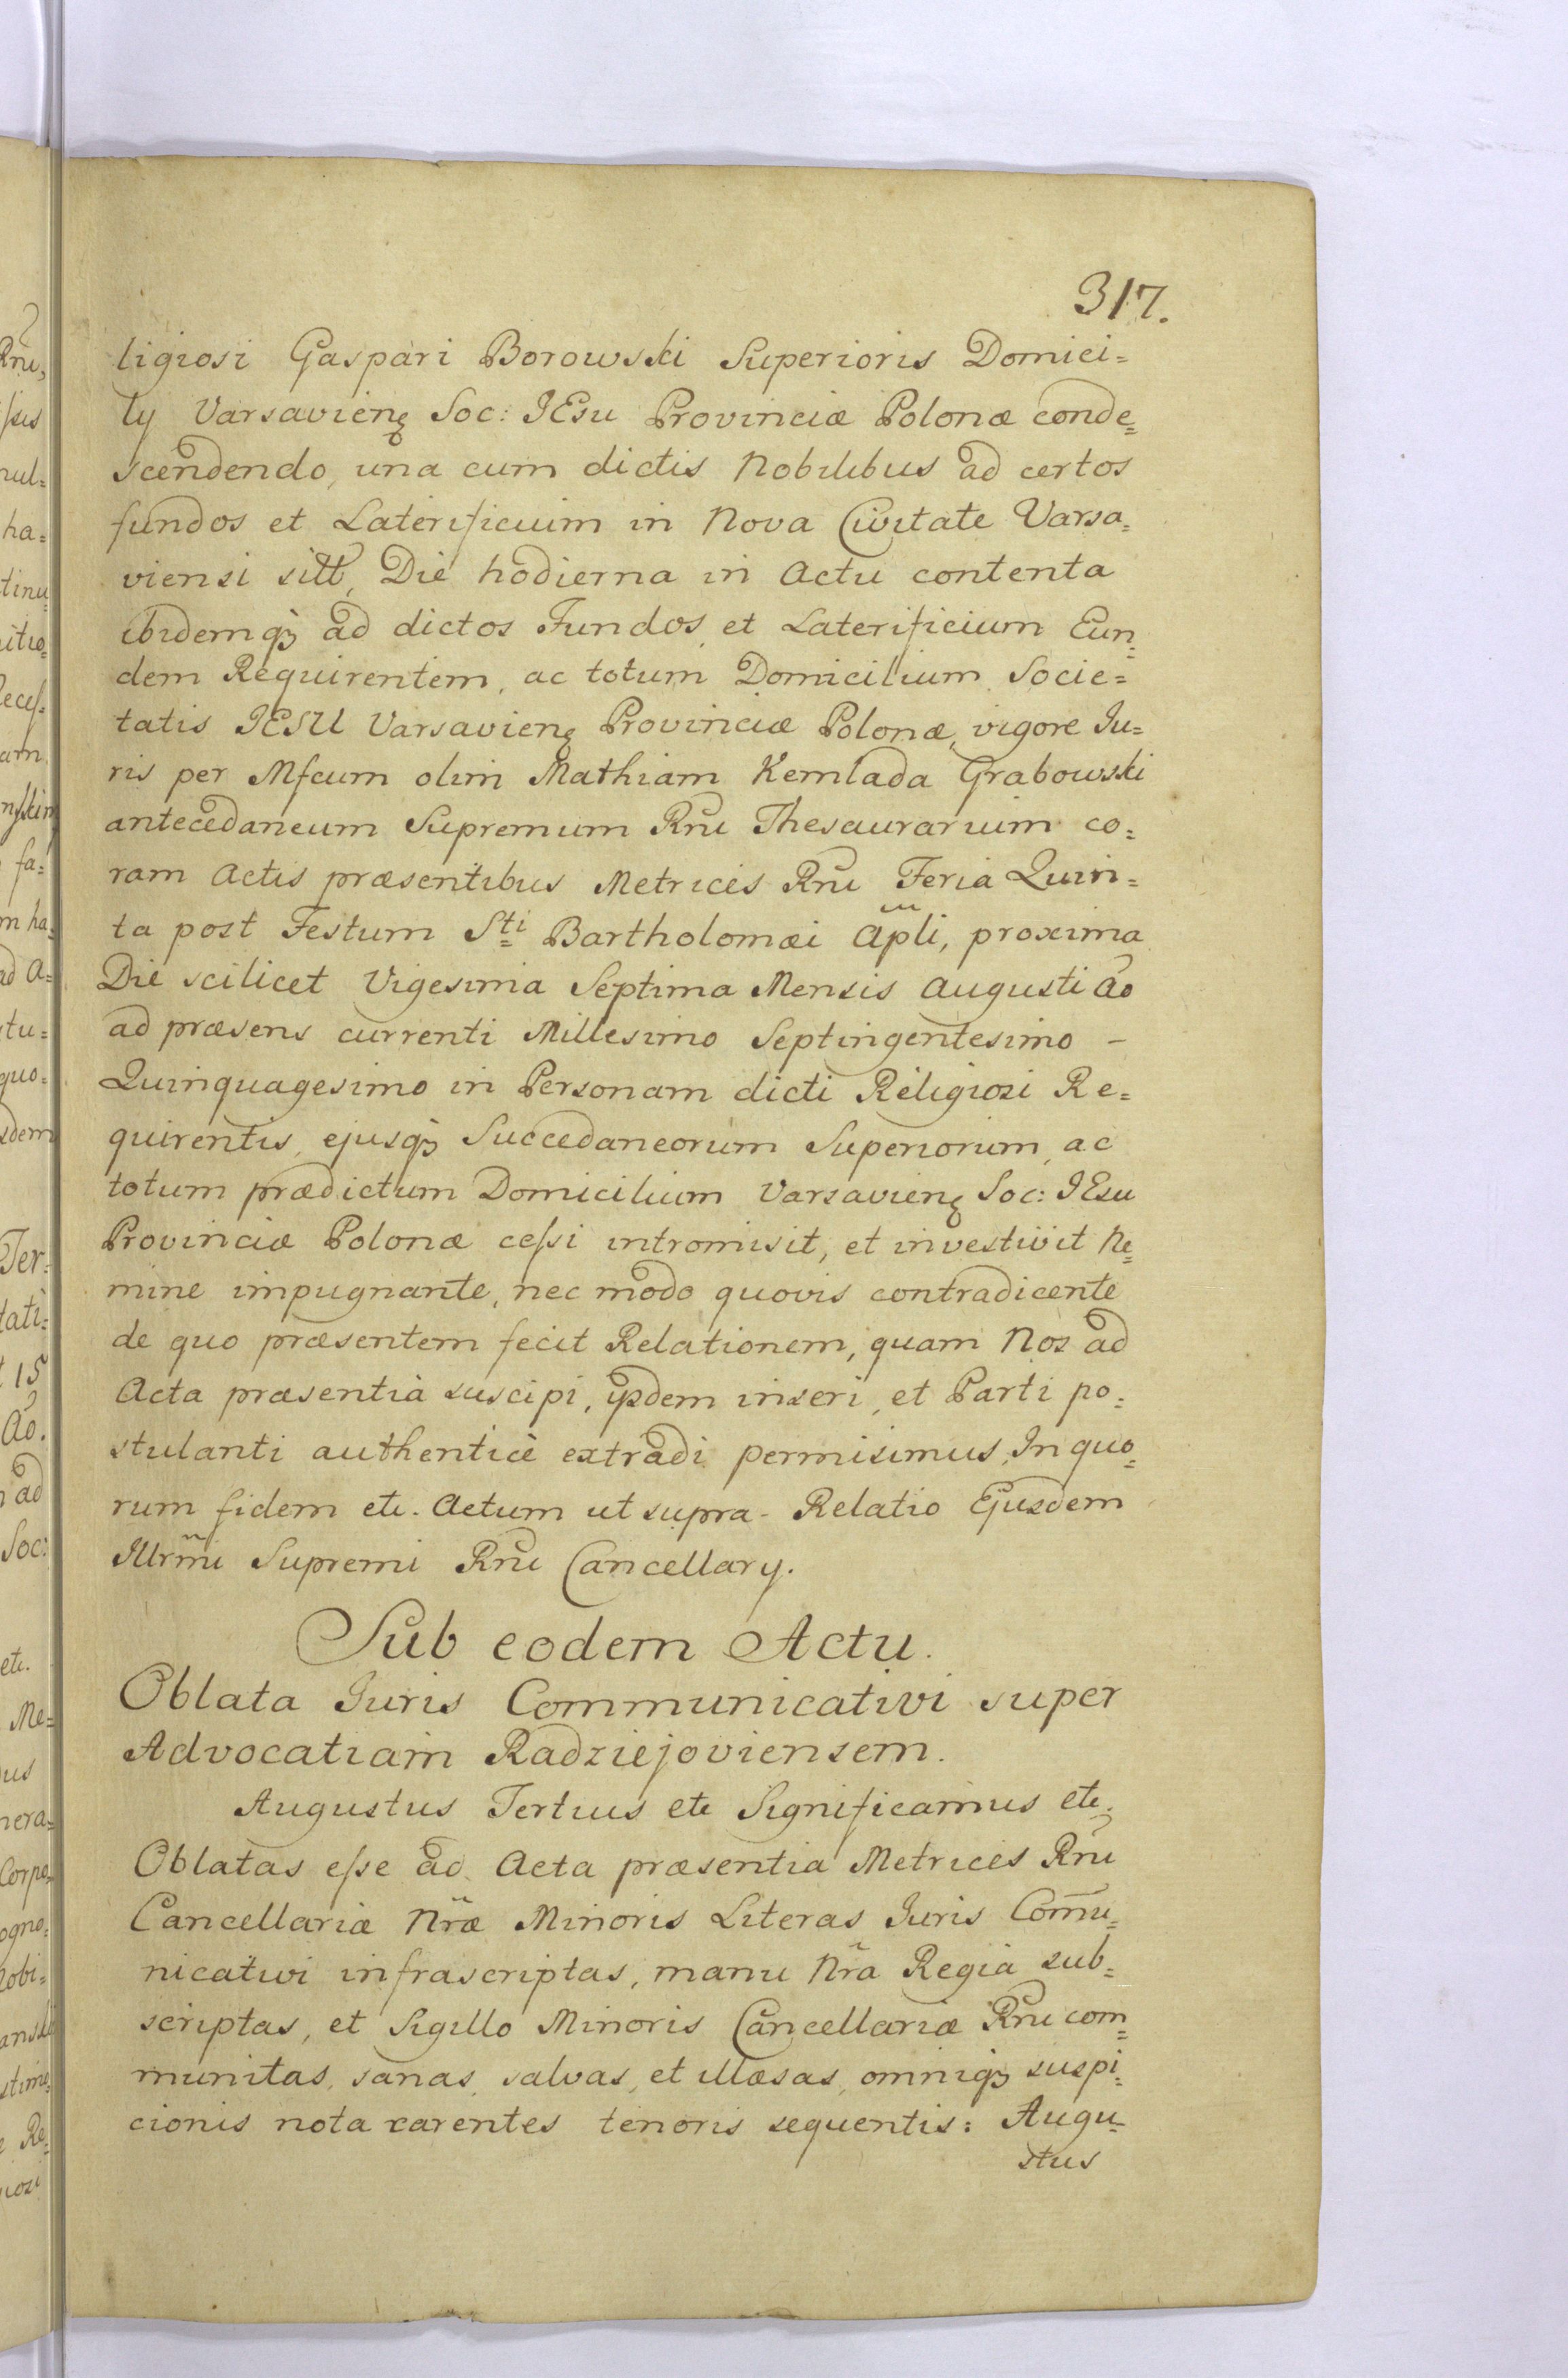 317.
ligiosi Gaspari Borowski Superioris Domici=
lÿ Varsavienꝫ Soc: IEsu Provinciæ Polonæ conde=
scendendo, una cum dictis Nobilibus ad certos
fundos et Laterificium in Nova Civitate Varsa=
viensi sitt, Die hodierna in Actu contenta
ibidemqꝫ ad dictos Fundos et Laterificium Eun=
dem Requirentem, ac totum Domicilium Socie=
tatis IESU Varsavienꝫ Provinciæ Polonæ, vigore Iu=
ris per Mfcum olim Mathiam Kemlada Grabowski
antecedaneum Supremum Rñi Thesaurarium co=
ram Actis præsentibus Metrices Rñi Feria Quin=
ta post Festum Sti Bartholomæi Apli, proxima
Die scilicet Vigesima Septima Mensis Augusti Ao
ad præsens currenti Millesimo Septingentesimo –
Quinquagesimo in Personam dicti Religiosi Re=
quirentis, ejusqꝫ Succedaneorum Superiorum, ac
totum prædictum Domicilium Varsavienꝫ Soc: IEsu
Provinciæ Polonæ ceſsi intromisit, et investivit Ne=
mine impugnante, nec modo quovis contradicente
de quo præsentem fecit Relationem, quam Nos ad
Acta præsentia suscipi, ÿsdem inseri, et Parti po=
stulanti authentice extradi permisimus, In quo=
rum fidem etc. Actum ut supra – Relatio Ejusdem
Illrmi Supremi Rñi Cancellarÿ.
Sub eodem Actu.
Oblata Iuris Communicativi super
Advocatiam Radziejoviensem.
Augustus Tertius etc Significamus etc.
Oblatas eſse ad Acta præsentia Metrices Rñi
Cancellariæ Nræ Minoris Literas Iuris Com̃u=
nicativi infrascriptas, manu Nra Regia sub=
scriptas, et Sigillo Minoris Cancellariæ Rñi com=
munitas, sanas, salvas, et illæsas, omniqꝫ suspi=
cionis nota carentes tenoris sequentis: Augu=
stus